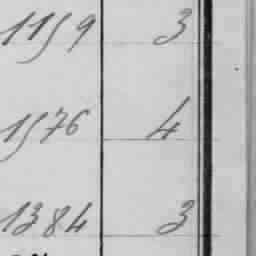 1159 3
1576 4
1384 3